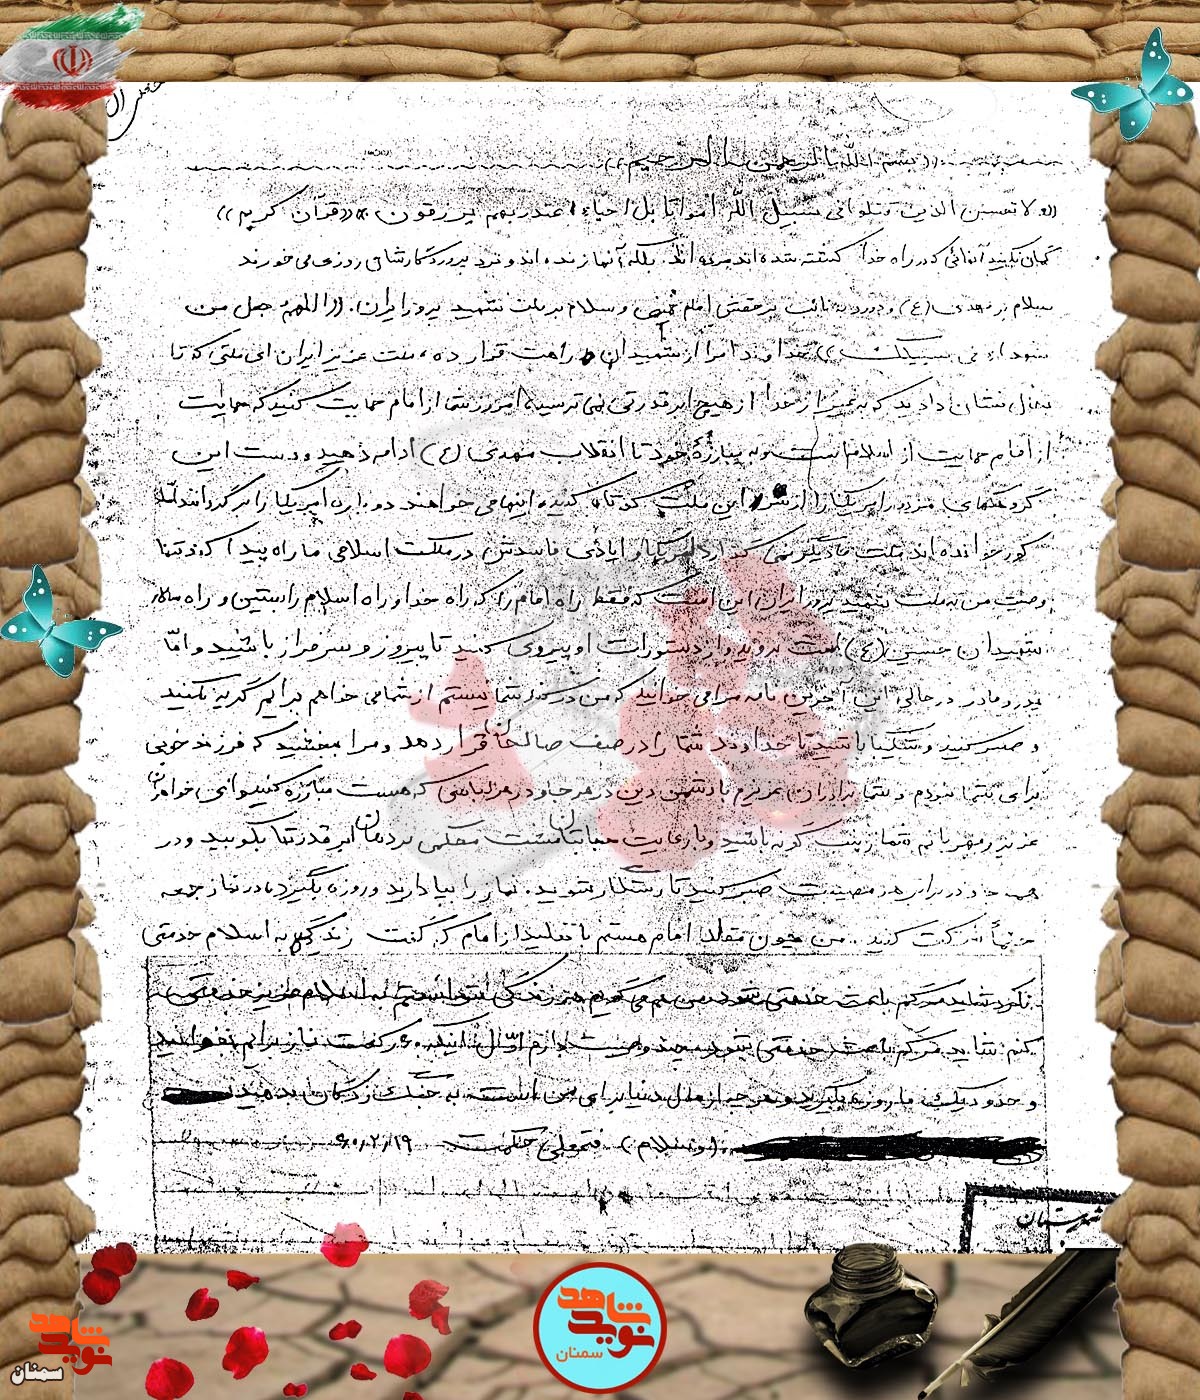 ((بسم الله الرحمن الرحیم))
((ولا تحسبن الذین قتلوا فی سبیل الله امواتا بل احیاء عند ربهم یرزقون)) ((قرآن کریم))
گمان نکنید آنهائی که در راه خدا کشته شده اند مرده اند. بلکه آنها زنده اند و نزد پروردگارشان روزی می خورند
سلام بر مهدی (عج) و درود به نائب بر حقش امام خمینی و سلام بر ملت شهید پرور ایران. ((اللهم جعل من
شهداء فی سبیلک)) خداوندا مرا از شهیدان راهت قرار ده، ملت عزیز ایران ای ملتی که تا
بحال نشان دادید که به غیر از خدا از هیچ ابر قدرتی نمی ترسید امروز شما از امام حمایت کنید که حمایت
از امام حمایت از اسلام است و به مبارزه خود تا انقلاب مهدی (عج) ادامه دهید و دست این
گروهکهای مزدور امریکا را از سر این ملت کوتاه کنید اینها می خواهند دوباره امریکا را برگردانند امّا
کور خوانده اند ملت ما دیگر نمی گذارد امریکا و ایادی فاسدش در مملکت اسلامی ما راه پیدا کند تنها
وصیت من به ملت شهید پرور ایران این است که فقط راه امام را که راه خدا و راه اسلام راستین و راه سالار
شهیدان حسین (ع) است بروید و از دستورات او پیروی کنید تا پیروز و سرفراز باشید و امّا
پدر و مادر در حالی این آخرین نامه مرا می خوانید که من در کنار شما نیستم از شما می خواهم برایم گریه نکنید
و صبر کنید و شکیبا باشید تا خداوند شما را در صف صالحان قرار دهد و مرا ببخشید که فرزند خوبی
برای شما نبودم و شما برادران عزیزم با دشمن دین در هر جا و در هر لباسی که هست مبارزه کنید و ای خواهران
عزیز و مهربانم شما زینب گونه باشید و با رعایت حجابتان مشت محکمی بر دهان ابر قدرتها بکوبید و در
همه جا و در برابر هر مصیبت صبر کنید تا رستگار شوید. نماز را بپا دارید و روزه بگیرید در نماز جمعه
حتماً شرکت کنید. من چون مقلد امام هستم با تقلید از امام که گفت زندگیم به اسلام خدمتی
نکرد شاید مرگم باعث خدمتی شود من هم می گویم در زندگی نتوانستم به اسلام عزیز خدمتی
کنم شاید مرگم باعث خدمتی شود چند وصیت دارم اوّل اینکه رکعت نماز برایم بخوانید
و حدود یک ماه روزه بگیرید و هر چه از مال دنیا برای من است به جنگ زدگان بدهید
(والسلام) فتحعلی حکمت ۶۰/۲/۱۹
شهرستان
شاهد
نوید
سمنان
نوید شاهد
سمنان